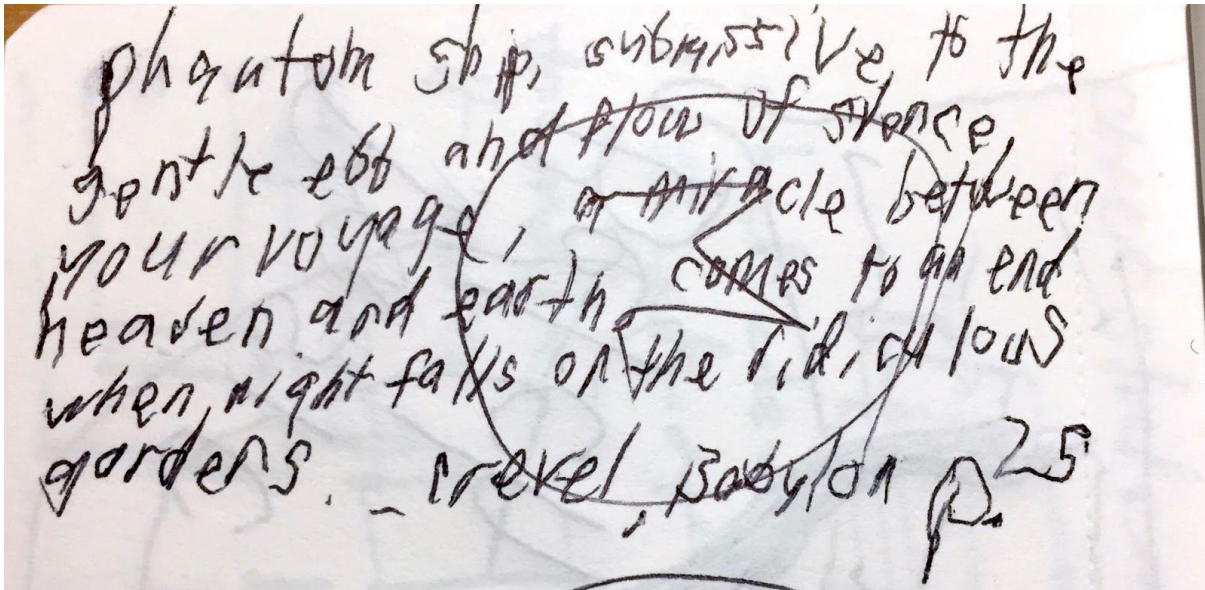 phantom ship, submissive, to the
gentle ebb and flow of silence,
your voyage, a miracle between
heaven and earth, comes to an end
when night falls on the ridiculous
gardens. - Crevel, Babylon p.25